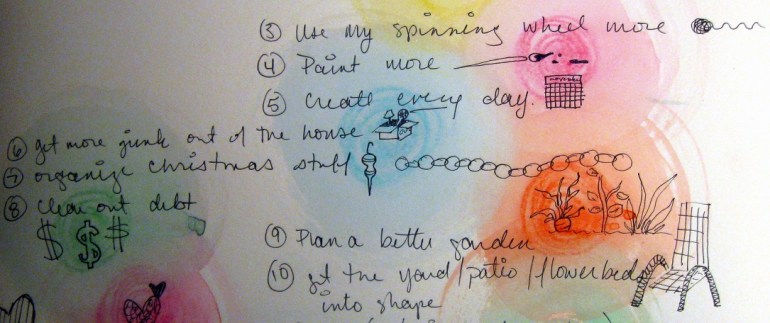 ③ Use my spinning wheel more
④ Paint more
⑤ Create every day.
november
⑥ get more junk out of the house
⑦ organize christmas stuff
⑧ clean out debt
$ $ $
⑨ Plan a better garden
⑩ get the yard/patio/flowerbeds
into shape